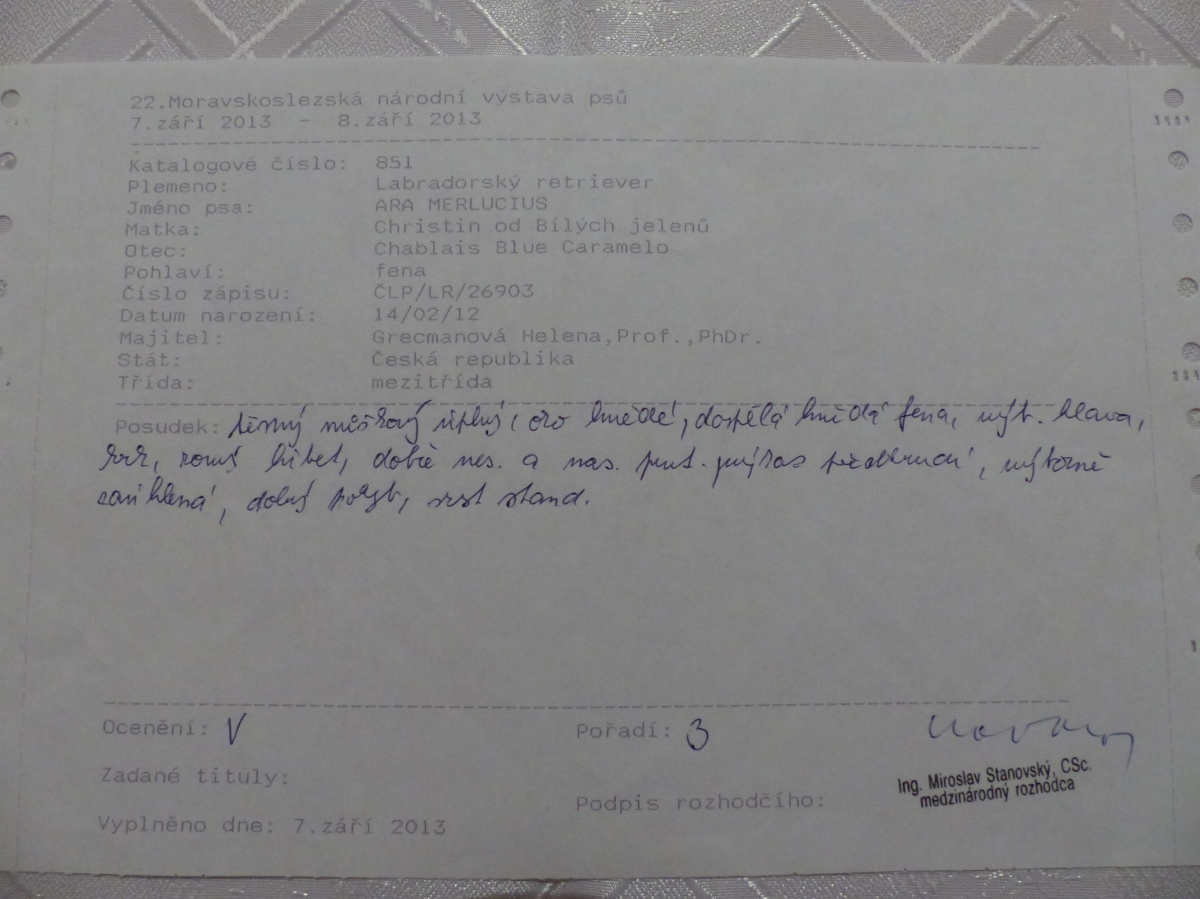 22.Moravskoslezská národní výstava psů
7.září 2013 - 8.září 2013
Katalogové číslo: 851
Plemeno: Labradorský retriever
Jméno psa: ARA MERLUCIUS
Matka: Christin od Bílých jelenů
Otec: Chablais Blue Caramelo
Pohlaví: fena
Číslo zápisu: ČLP/LR/26903
Datum narození: 14/02/12
Majitel: Grecmanová Helena,Prof.,PhDr.
Stát: Česká republika
Třída: mezitřída
Posudek: nůžkový úplný, oko hnědé, dospělá hnědá fena, výb. hlava,
krk, rovný hřbet, dobře nes. a nas. prut. předhrudí, výborně
zaúhlená, dobrý pohyb, srst stand.
Ocenění: V
Pořadí: 3
Zadané tituly:
Podpis rozhodčího:
Ing. Miroslav Stanovský, CSc.
medzinárodný rozhodca
Vyplněno dne: 7.září 2013